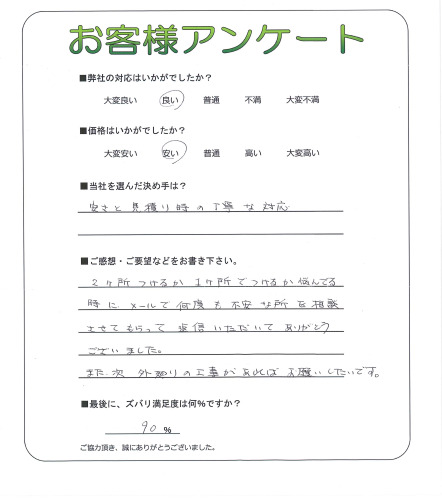 お客様アンケート
■弊社の対応はいかがでしたか？
大変良い 良い 普通 不満 大変不満
■価格はいかがでしたか？
大変安い 安い 普通 高い 大変高い
■当社を選んだ決め手は？
安さと見積り時の丁寧な対応
■ご感想・ご要望などをお書き下さい。
2ヶ所つけるか1ヶ所でつけるか悩んでる
時にメールで何度も不安な所を相談
させてもらって返信いただいてありがとう
ございました。
また次外回りの工事があればお願いしたいです。
■最後に、ズバリ満足度は何％ですか？
90 ％
ご協力頂き、誠にありがとうございました。